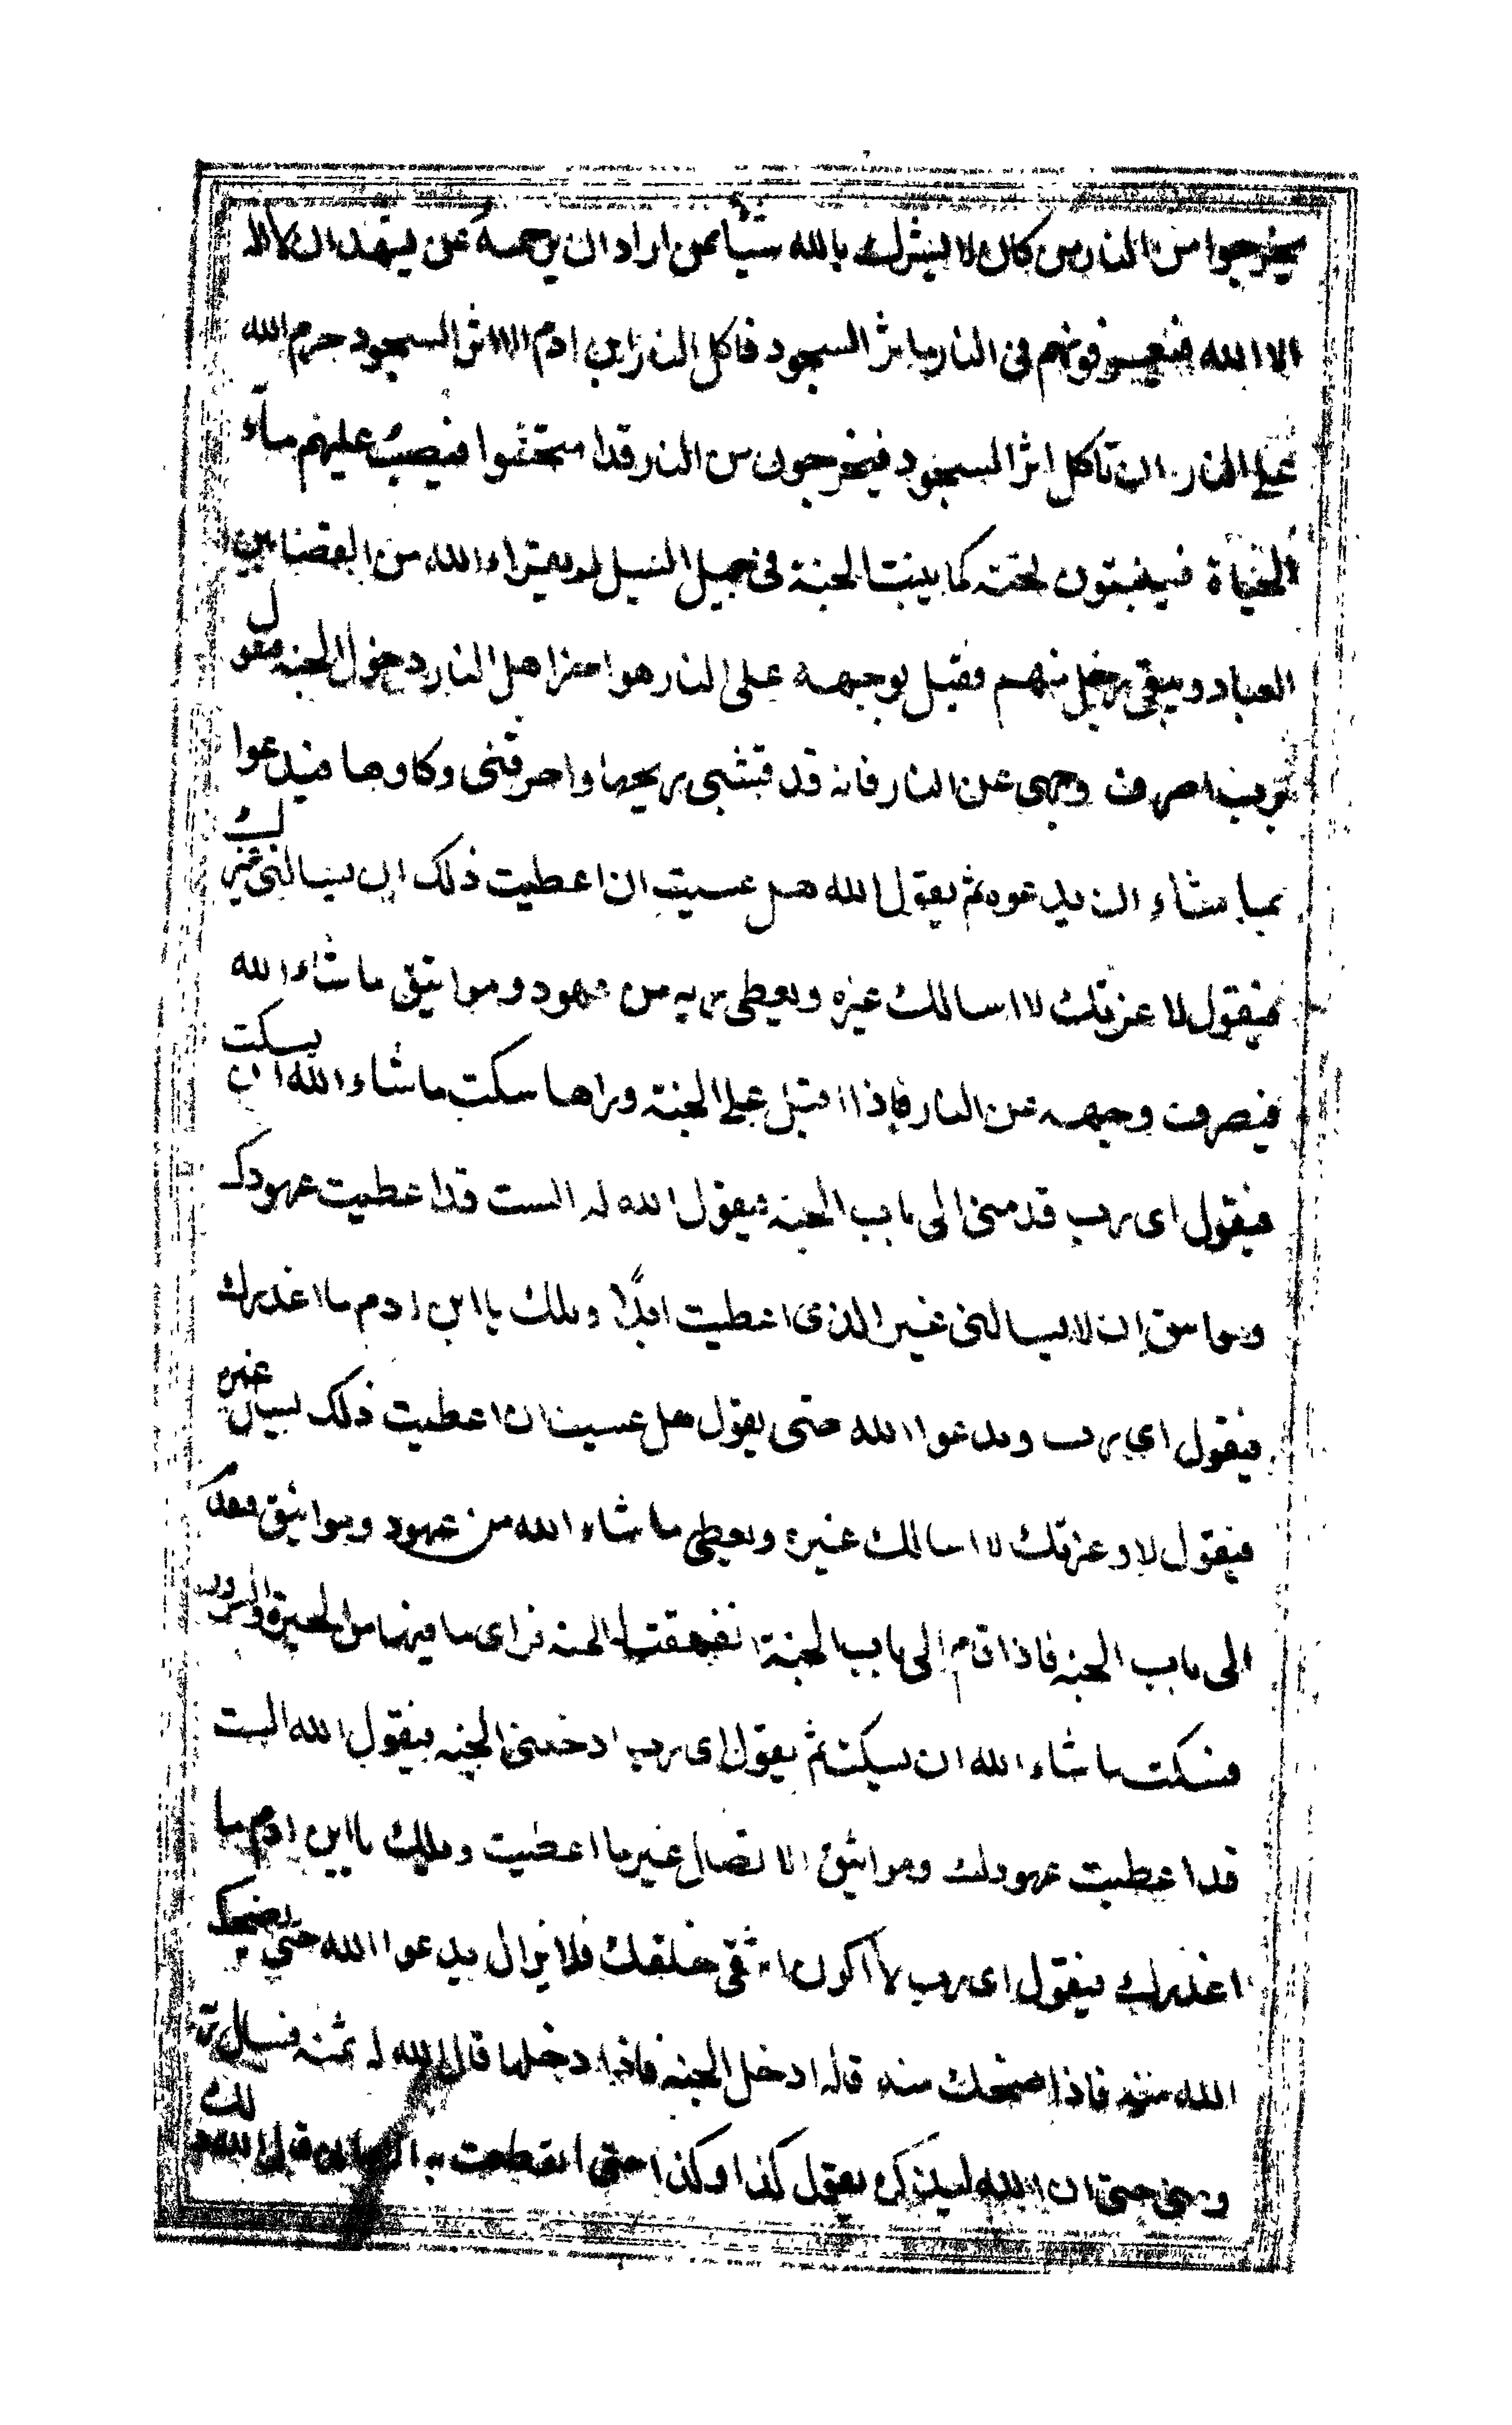 يخرجوا من النار من كان لا يشرك بالله شيأ ممن اراد ان يرحمه ممن يشهد ان لا اله
الا الله فيعرفونهم في النار باثر السجود تاكل النار ابن ادم الا اثر السجود حرم الله
على النار ان تاكل اثر السجود فيخرجون من النار قد امتحشوا فيصب عليهم ماء
الحياة فينبتون تحته كما ينبت الحبة في حميل السيل ثم يفرغ الله من القضا بين
العباد ويبقى رجل منهم مقبل بوجهه على النار هو اخر اهل النار دخول الجنه فيقول
يرب اصرف وجهى عن النار فانه قد قشبنى ريحها واحرقنى ذكاوها فيدعوا
بما شاء ان يدعوه ثم يقول الله هل عسيت ان اعطيت ذلك ان يسالنى غيرك
فيقول لا عزتك لا اسالك غيره ويعطى ربه من عهود ومواثيق ما شاء الله
فيصرف وجهه عن النار فاذا اقبل على الجنة وراها سكت ما شاء الله ان يسكت
فيقول اى رب قدمنى الى باب الجنه فيقول الله له الست قد اعطيت عهودك
ومواثيق ان لا يسالنى غير الذى اعطيت ابدًا ويلك يا ابن ادم ما اغدرك
فيقول اى رب ويدعوا الله حتى يقول هل عسيت ان اعطيت ذلك يسال غيره
فيقول لا وعزتك لا اسالك غيره ويعطى ما شاء الله من عهود ومواثيق فقدمه
الى باب الجنه فاذا قام الى باب الجنة انفهقت له الجنه فراى ما فيها من الحبرة والسرور
فسكت ما شاء الله ان يسكت ثم يقول اى رب ادخلنى الجنه فيقول الله الست
قد اعطيت عهودك ومواثيق الا تسال غير ما اعطيت ويلك يا ابن ادم ما
اغدرك فيقول اى رب لا اكون اشقى خلقك فلا يزال يدعوا الله حتى يضحك
الله منه فاذا ضحك منه قال له ادخل الجنه فاذا دخلها قال الله له تمنه فسال ربه
وتمنى حتى ان الله ليذكره يقول كذا وكذا حتى انقطعت به الامانى قال الله ذلك لك